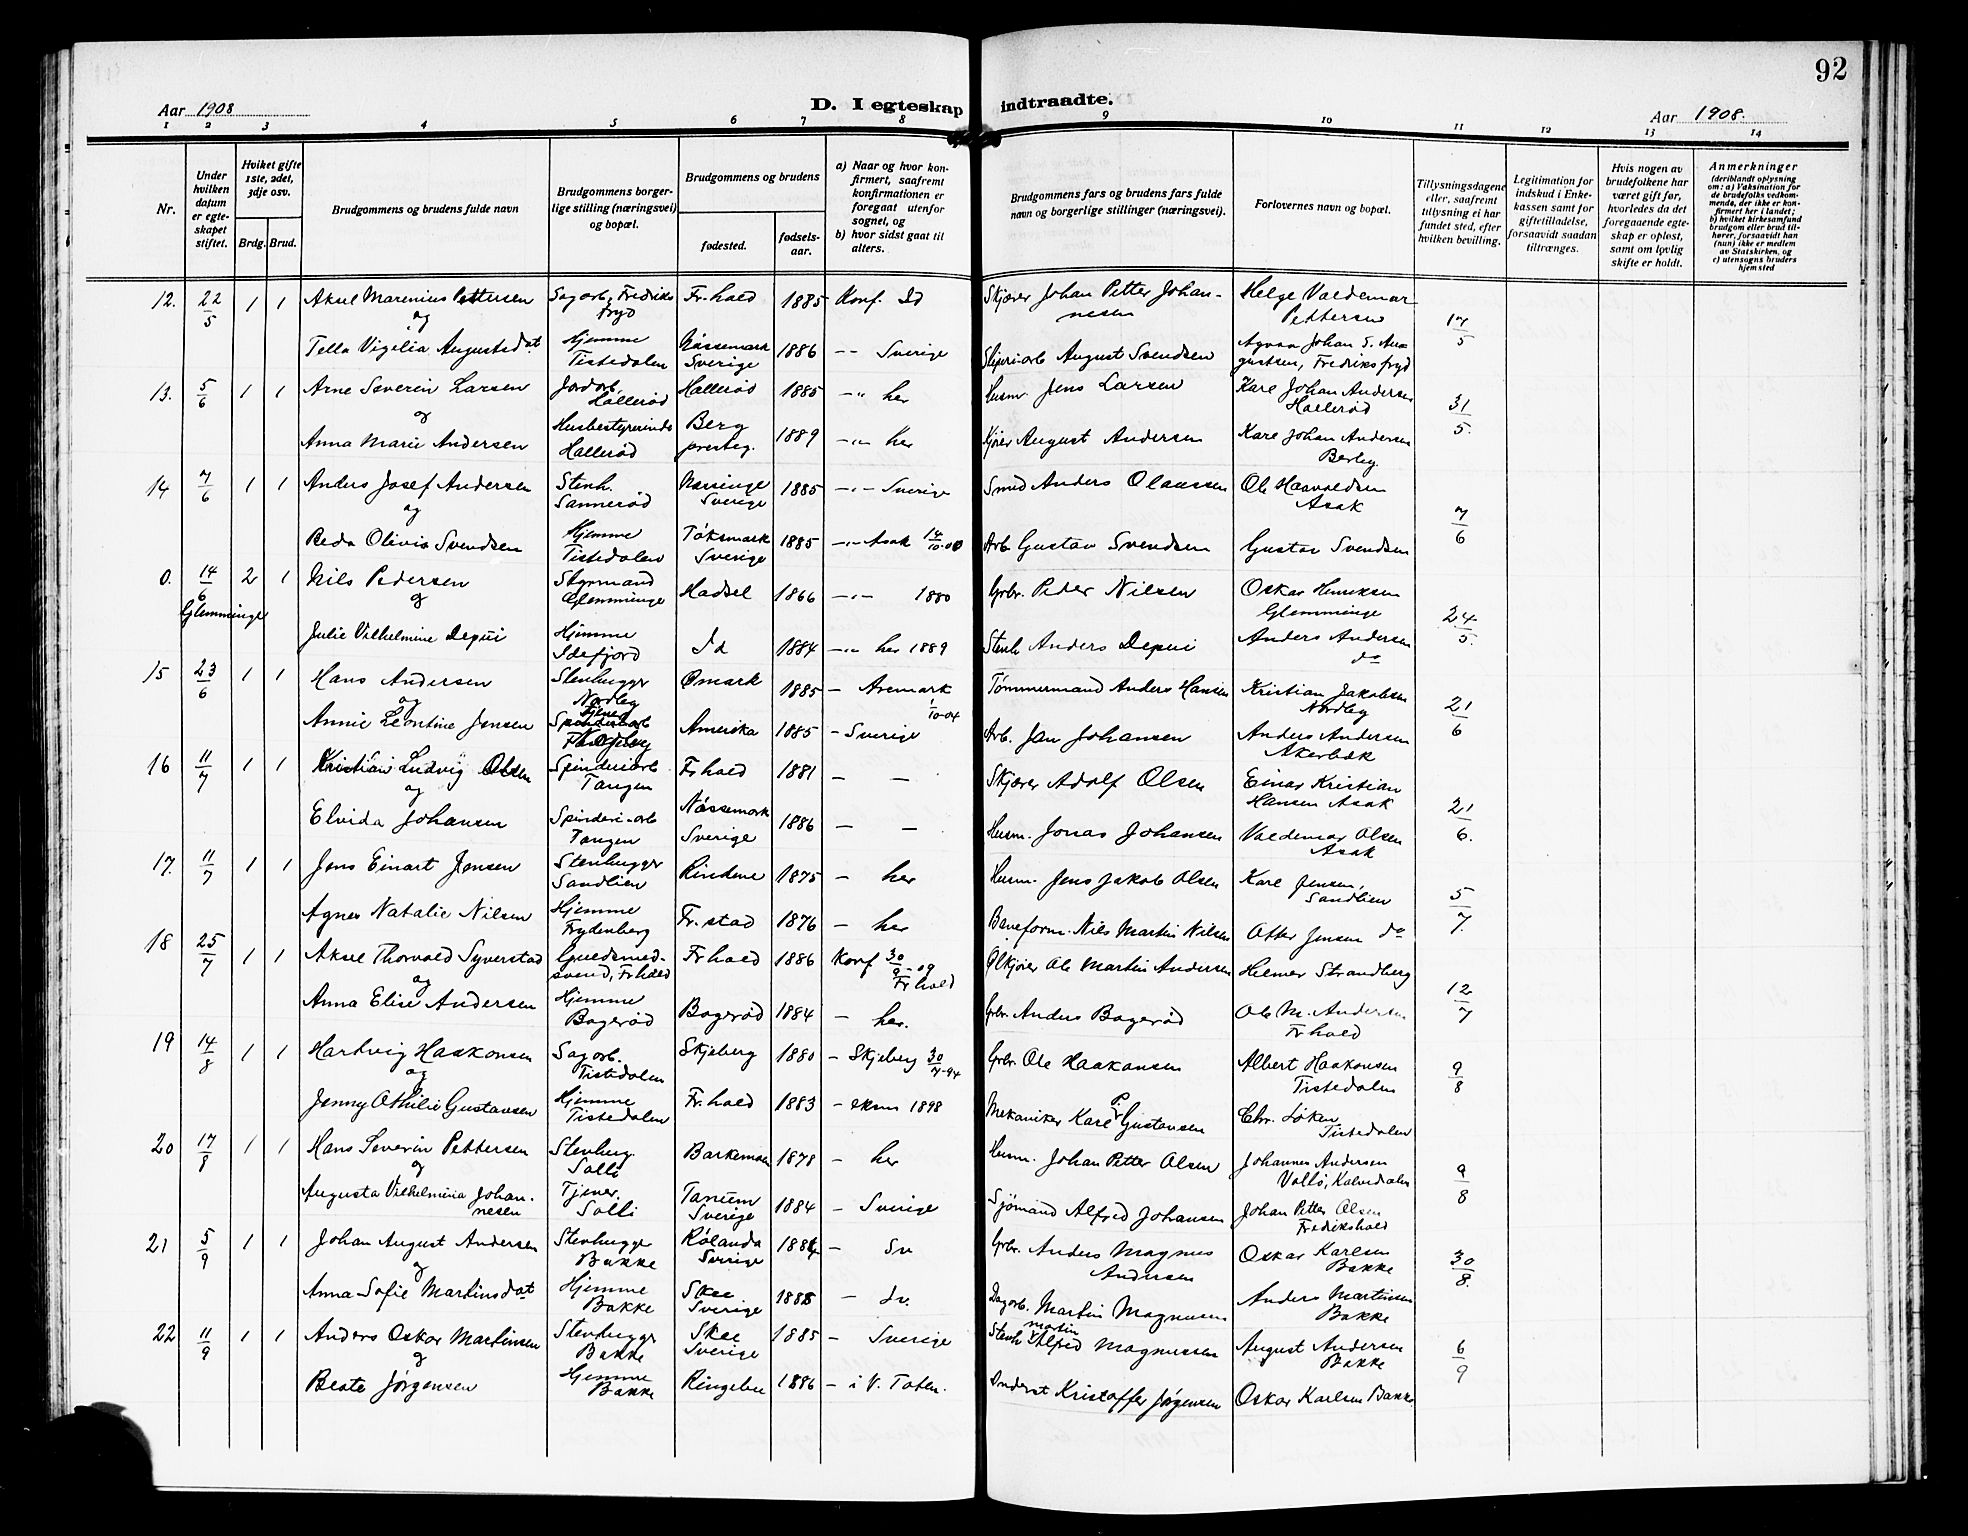 92
Aar 1908
D. I egteskap indtraadte.
Aar 1908.
1 2 3 4 5 6 7 8 9 10 11 12 13 14
Nr.
Under hvilken datum er egteskapet stiftet.
Hvilket gifte 1ste, 2det, 3dje osv.
Brdg. Brud.
Brudgommens og brudens fulde navn
Brudgommens borgerlige stilling (næringsvei) og bopæl.
Brudgommens og brudens
fødested.
fødselsaar.
a) Naar og hvor konfirmert, saafremt konfirmationen er foregaat utenfor sognet, og
b) hvor sidst gaat til alters.
Brudgommens fars og brudens fars fulde navn og borgerlige stillinger (næringsvei).
Forlovernes navn og bopæl.
Tillysningsdagene eller, saafremt tillysning ei har fundet sted, efter hvilken bevilling.
Legitimation for indskud i Enkekassen samt for giftetilladelse, forsaavidt saadan tiltrænges.
Hvis nogen av brudefolkene har været gift før, hvorledes da det foregaaende egteskap er opløst, samt om lovlig skifte er holdt.
Anmerkninger
(deriblandt oplysning om: a) Vaksination for de brudefolks vedkommende, der ikke er konfirmert her i landet; b) hvilket kirkesamfund brudgom eller brud tilhører, forsaavidt han (hun) ikke er medlem av Statskirken, og c) utensogns bruders hjemsted
12. 22/5 1 1 Aksel Marenius Pettersen Sagarb. Fredriksfryd Fr.hald 1885 Konf. Id Skjærer Johan Petter Johannesen Helge Valdemar Pettersen 17/5
og
Tella Vigilia Augustsdat. Hjemme Tistedalen Nössemark Sverige 1886 -"- Sverige Sliperiarb August Svendsen Johan S. Augustsen, Fredriksfryd
13. 5/6 1 1 Arne Severin Larsen Jordarb. Hallerød Hallerød 1885 -"- her Husm. Jens Larsen Karl Johan Andersen Hallerød 31/5.
og
Anna Marie Andersen Husbestyrerinde Hallerød Berg presteg. 1889 -"- her Kjører August Andersen Karl Johan Andersen Berby.
14 7/6 1 1 Anders Josef Andersen Stenh. Sannerød Sverige 1885 -"- Sverige Smed Anders Olaussen Ole Haavaldsen Asak 7/6
og
Beda Olivia Svendsen Hjemme Tistedalen Töksmark Sverige 1885 -"- Asak 14/10-00 Arb. Gustav Svendsen Gustav Svendsen
0. 14/6 Glemminge 2 1 Nils Pedersen Styrmand Glemminge Hadsel 1866 -"- 1880 Grbr. Peder Nilsen Oskar Henriksen Glemminge 24/5.
og
Julie Vilhelmine Depui Hjemme Idefjord Id 1884 -"- her 1889 Stenh Anders Depui Anders Andersen do
15 23/6 1 1 Hans Andersen Stenhugger Nordby Ømark 1885 - Aremark 1/10-04 Tømmermand Anders Hansen Kristian Jakobsen Nordby 21/6
og
Annie Leontine Jensen Tjener Nordby Amerika 1885 - Sverige Arb. Jan Johansen Anders Andersen Akerbæk
16 11/7 1 1 Kristian Ludvig Olsen Spinderiarb Tangen Fr hald 1881 - - Skjærer Adolf Olsen Einar Kristian Hansen Asak 21/6.
og
Elvida Johansen Spinderi-arb Tangen Nössemark Sverige 1886 - - Husm. Jonas Johansen Valdemar Olsen Asak
17. 11/7 1 1 Jens Einart Jensen Stenhugger Sandlien Rindene 1875 - her Husm. Jens Jakob Olsen Karl Jensen, Sandlien 5/7.
Agnes Natalie Nilsen Hjemme Frydenberg Fr.stad 1876 - her Baneform. Nils Martin Nilsen Otter Jensen do
18 25/7 1 1 Aksel Thorvald Syverstad Guldsmedsvend, Fr hald Fr hald 1886 Konf 30/9-09 Fr hald Ølkjører Ole Martin Andersen Helmer Strandberg 12/7
og
Anna Elise Andersen Hjemme Bagerød Bagerød 1884 - her. Grbr. Anders Bagerød Ole M. Andersen Fr hald
19 14/8 1 1 Hartvig Haakonsen Sagarb. Tistedalen Skjeberg 1880 - Skjeberg 30/7-94 Grbr. Ole Haakonsen Albert Haakonsen Tistedalen 9/8
og
Jenny Othilie Gustavsen Hjemme Tistedalen Fr. hald 1883 - 1898 Mekaniker Karl P. Gustavsen Chr. Løken Tistedalen
20 17/8 1 1 Hans Severin Pettersen Stenhug. Solli 1878 - her Husm. Johan Petter Olsen Johannes Andersen 9/8
og
Augusta Vilhelmina Johannesen Tjener. Solli Tanum Sverige 1884 - Sverige Sjømand Alfred Johansen Johan Petter Olsen Fredrikshald
21 5/9 1 1 Johan August Andersen Stenhugger Bakke Rölanda Sverige 1884 - Sv Grbr. Anders Magnus Andersen Oskar Karlsen Bakke 30/8.
og
Anna Sofie Martinsdat Hjemme Bakke Skee Sverige 1888 - Sv. Dagarb. Martin Magnusen Anders Martinsen Bakke
22 11/9 1 1 Anders Oskar Martinsen Stenhugger Bakke Skee Sverige 1885 - Sverige Stenh Martin Alfred Magnussen August Andersen Bakke 6/9
og
Beate Jørgensen Hjemme Bakke Ringebu 1886 - i V. Toten. Inderst Kristoffer Jørgensen Oskar Karlsen Bakke